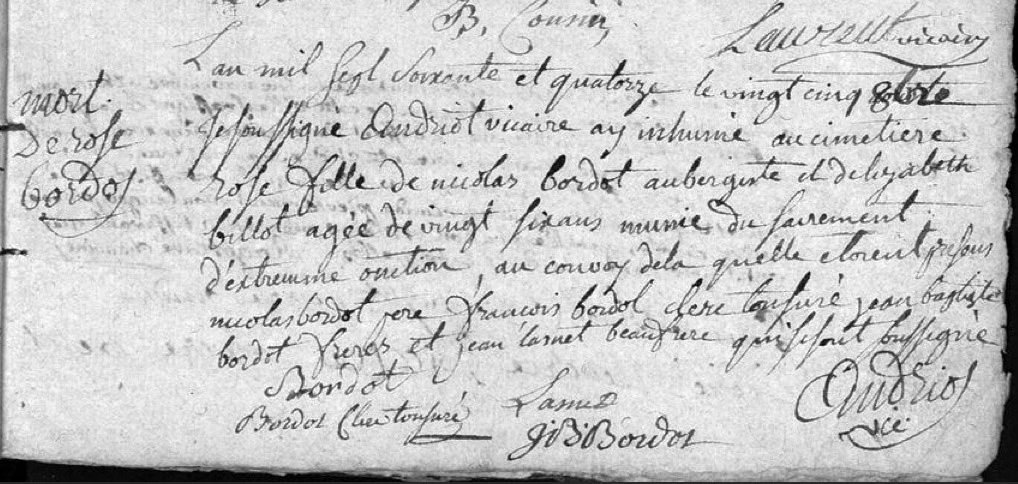 B. Cousin
Laurent vicaire
L'an mil sept soixante et quatorze le vingt cinq 8bre
mort
De rose
bordot
Je soussigné Andriot vicaire ay inhumé au cimetiere
rose fille de nicolas bordot aubergiste et delizabeth
billot agée de vingt six ans munie du sacrement
d'extremme onction, au convoy dela quelle etoient presens
nicolas bordot pere françois bordot clerc tonsuré jean baptiste
bordot freres et jean lamet beaufrere qui se sont soussigné
Bordot
Bordot Clerc tonsuré
Lamet
JB Bordot
Andriot
vic